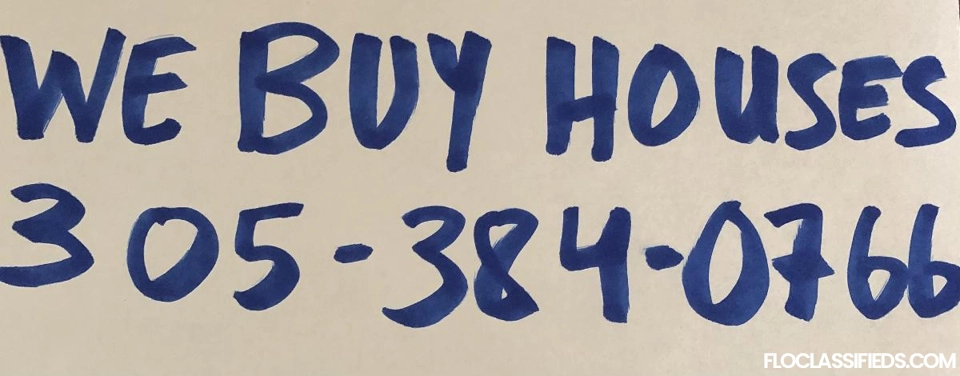 WE BUY HOUSES
305-384-0766
FLOCLASSIFIEDS.COM